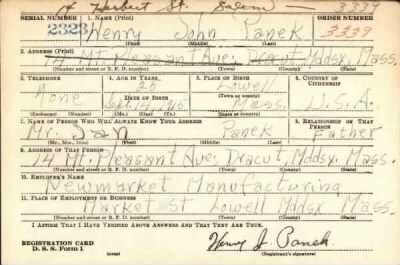 14 Herbert St. Salem - 3339
SERIAL NUMBER 1. NAME (Print) ORDER NUMBER
2323 Henry John Panek 3339
(First) (Middle) (Last)
2. ADDRESS (Print)
14 Mt. Pleasant Ave. Dracut, Mddsx. Mass.
(Number and street or R. F. D. number) (Town) (County) (State)
3. TELEPHONE 4. AGE IN YEARS 5. PLACE OF BIRTH 6. COUNTRY OF CITIZENSHIP
25 Lowell
(Town or county)
None DATE OF BIRTH
Sept. Mass. U.S.A.
(Exchange) (Number) (Mo.) (Day) (Yr.) (State or country)
7. NAME OF PERSON WHO WILL ALWAYS KNOW YOUR ADDRESS 8. RELATIONSHIP OF THAT PERSON
Mr. Jan Panek Father
(Mr., Mrs., Miss) (First) (Middle) (Last)
9. ADDRESS OF THAT PERSON
14 Mt. Pleasant Ave. Dracut, Mddsx. Mass.
(Number and street or R. F. D. number) (Town) (County) (State)
10. EMPLOYER'S NAME
Newmarket Manufacturing
11. PLACE OF EMPLOYMENT OR BUSINESS
Market St Lowell Mddsx Mass.
(Number and street or R. F. D. number) (Town) (County) (State)
I AFFIRM THAT I HAVE VERIFIED ABOVE ANSWERS AND THAT THEY ARE TRUE.
REGISTRATION CARD
D. S. S. Form 1 (over) Henry J. Panek
(Registrant's signature)